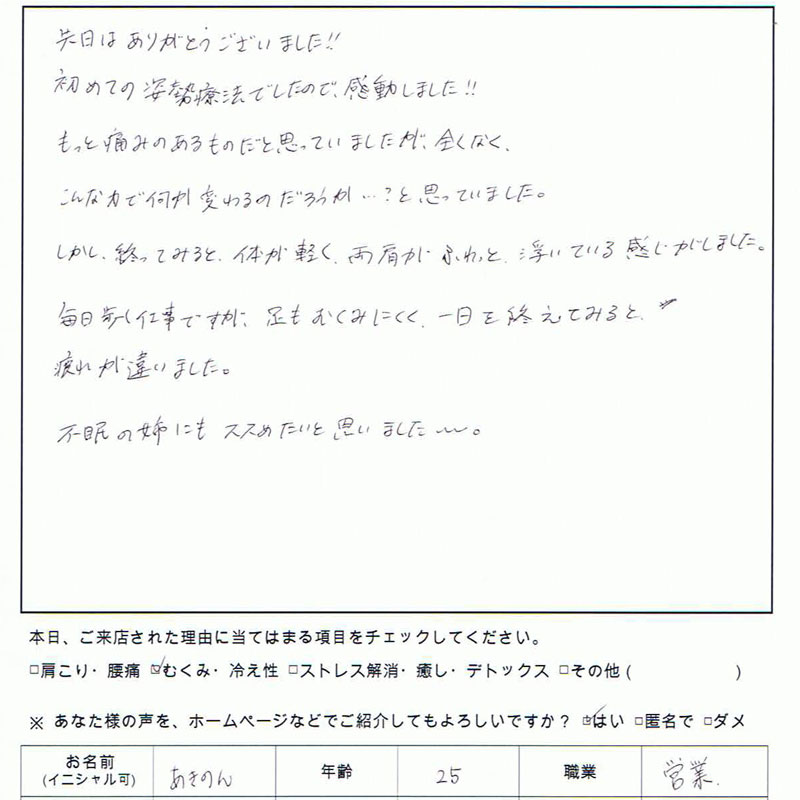 先日はありがとうございました!!
初めての姿勢療法でしたので、感動しました!!
もっと痛みのあるものだと思っていましたが、全くなく、
こんな力で何が変わるのだろうか…?と思っていました。
しかし、終ってみると、体が軽く、両肩がふわっと、浮いている感じがしました。
毎日歩く仕事ですが、足もむくみにくく、一日を終えてみると、
疲れが違いました。
不眠の姉にもススめたいと思いました〜。
本日、ご来店された理由に当てはまる項目をチェックしてください。
□肩こり・腰痛 ☑むくみ・冷え性 □ストレス解消・癒し・デトックス □その他 ( )
※ あなた様の声を、ホームページなどでご紹介してもよろしいですか? ☑はい □匿名で □ダメ
お名前 (イニシャル可) あきのん 年齢 25 職業 営業.